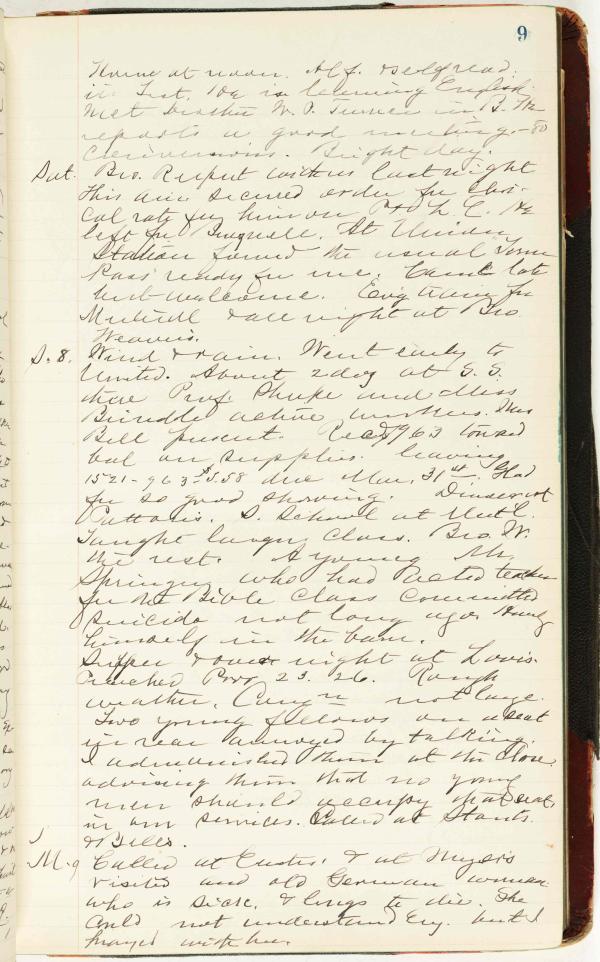 9
Home at noon. Alf. & self read
in Test. He is learning English.
Met brother W. P. Turner in B. He
reports a good meeting - 80
conversions. Bright day.
Sat. Bro. Rupert with us last night
This a.m. secured order for cleri-
cal rate for him on P & L. E. He
left for . At Union
Station found the usual
Pass ready for me. Came late
but welcome. Evg train for
& all night at Bro.
Weaver's.
S. 8. Wind & rain. Went early to
United. About 2 doz at S. S.
there Prof. and Miss
Brindle active workers. Mrs
Bell present. Recd 963 toward
bal on supplies. leaving
1521 - 963 $5.58 due Mar. 31st. Glad
for so good showing. Dinner at
Patton's. S. School at Mut C.
Taught large class. Bro. W.
the rest. A young Mr.
Springer who had acted teacher
for the Bible Class committed
suicide not long ago. Hung
himself in the barn.
Supper & over night at Lovis.
Preached Prov 23. 26. Rough
weather. Cong'n not large.
Two young fellows on a seat
in rear annoyed by talking.
I admonished them at the close
advising them that no young
men should occupy that seat
in our services. Called at
& Bells.
M. 9 Called at & at Myers
visited and old German woman
who is sick, & longs to die. She
could not understand Eng. but I
prayed with her.